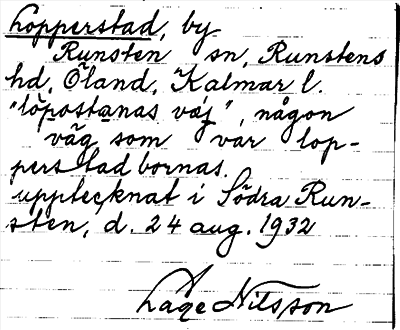 Lopperstad, by
Runsten sn, Runstens
hd, Öland, Kalmar l.
"löpostanas väj", någon
väg som var lop-
perstadbornas.
upptecknat i Södra Run-
sten, d. 24 aug. 1932
Lage Nilsson